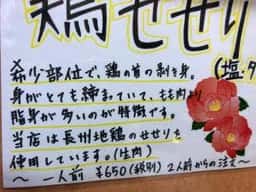 鶏せせり
(塩・タ
※希少部位で、鶏の首の剥き身。
身がとても締まっていて、もも肉より
脂身が多いのが特徴です。
当店は長州地鶏のせせりを
使用しています。(生肉)
〜 一人前 ¥650(税別) 2人前からの注文〜